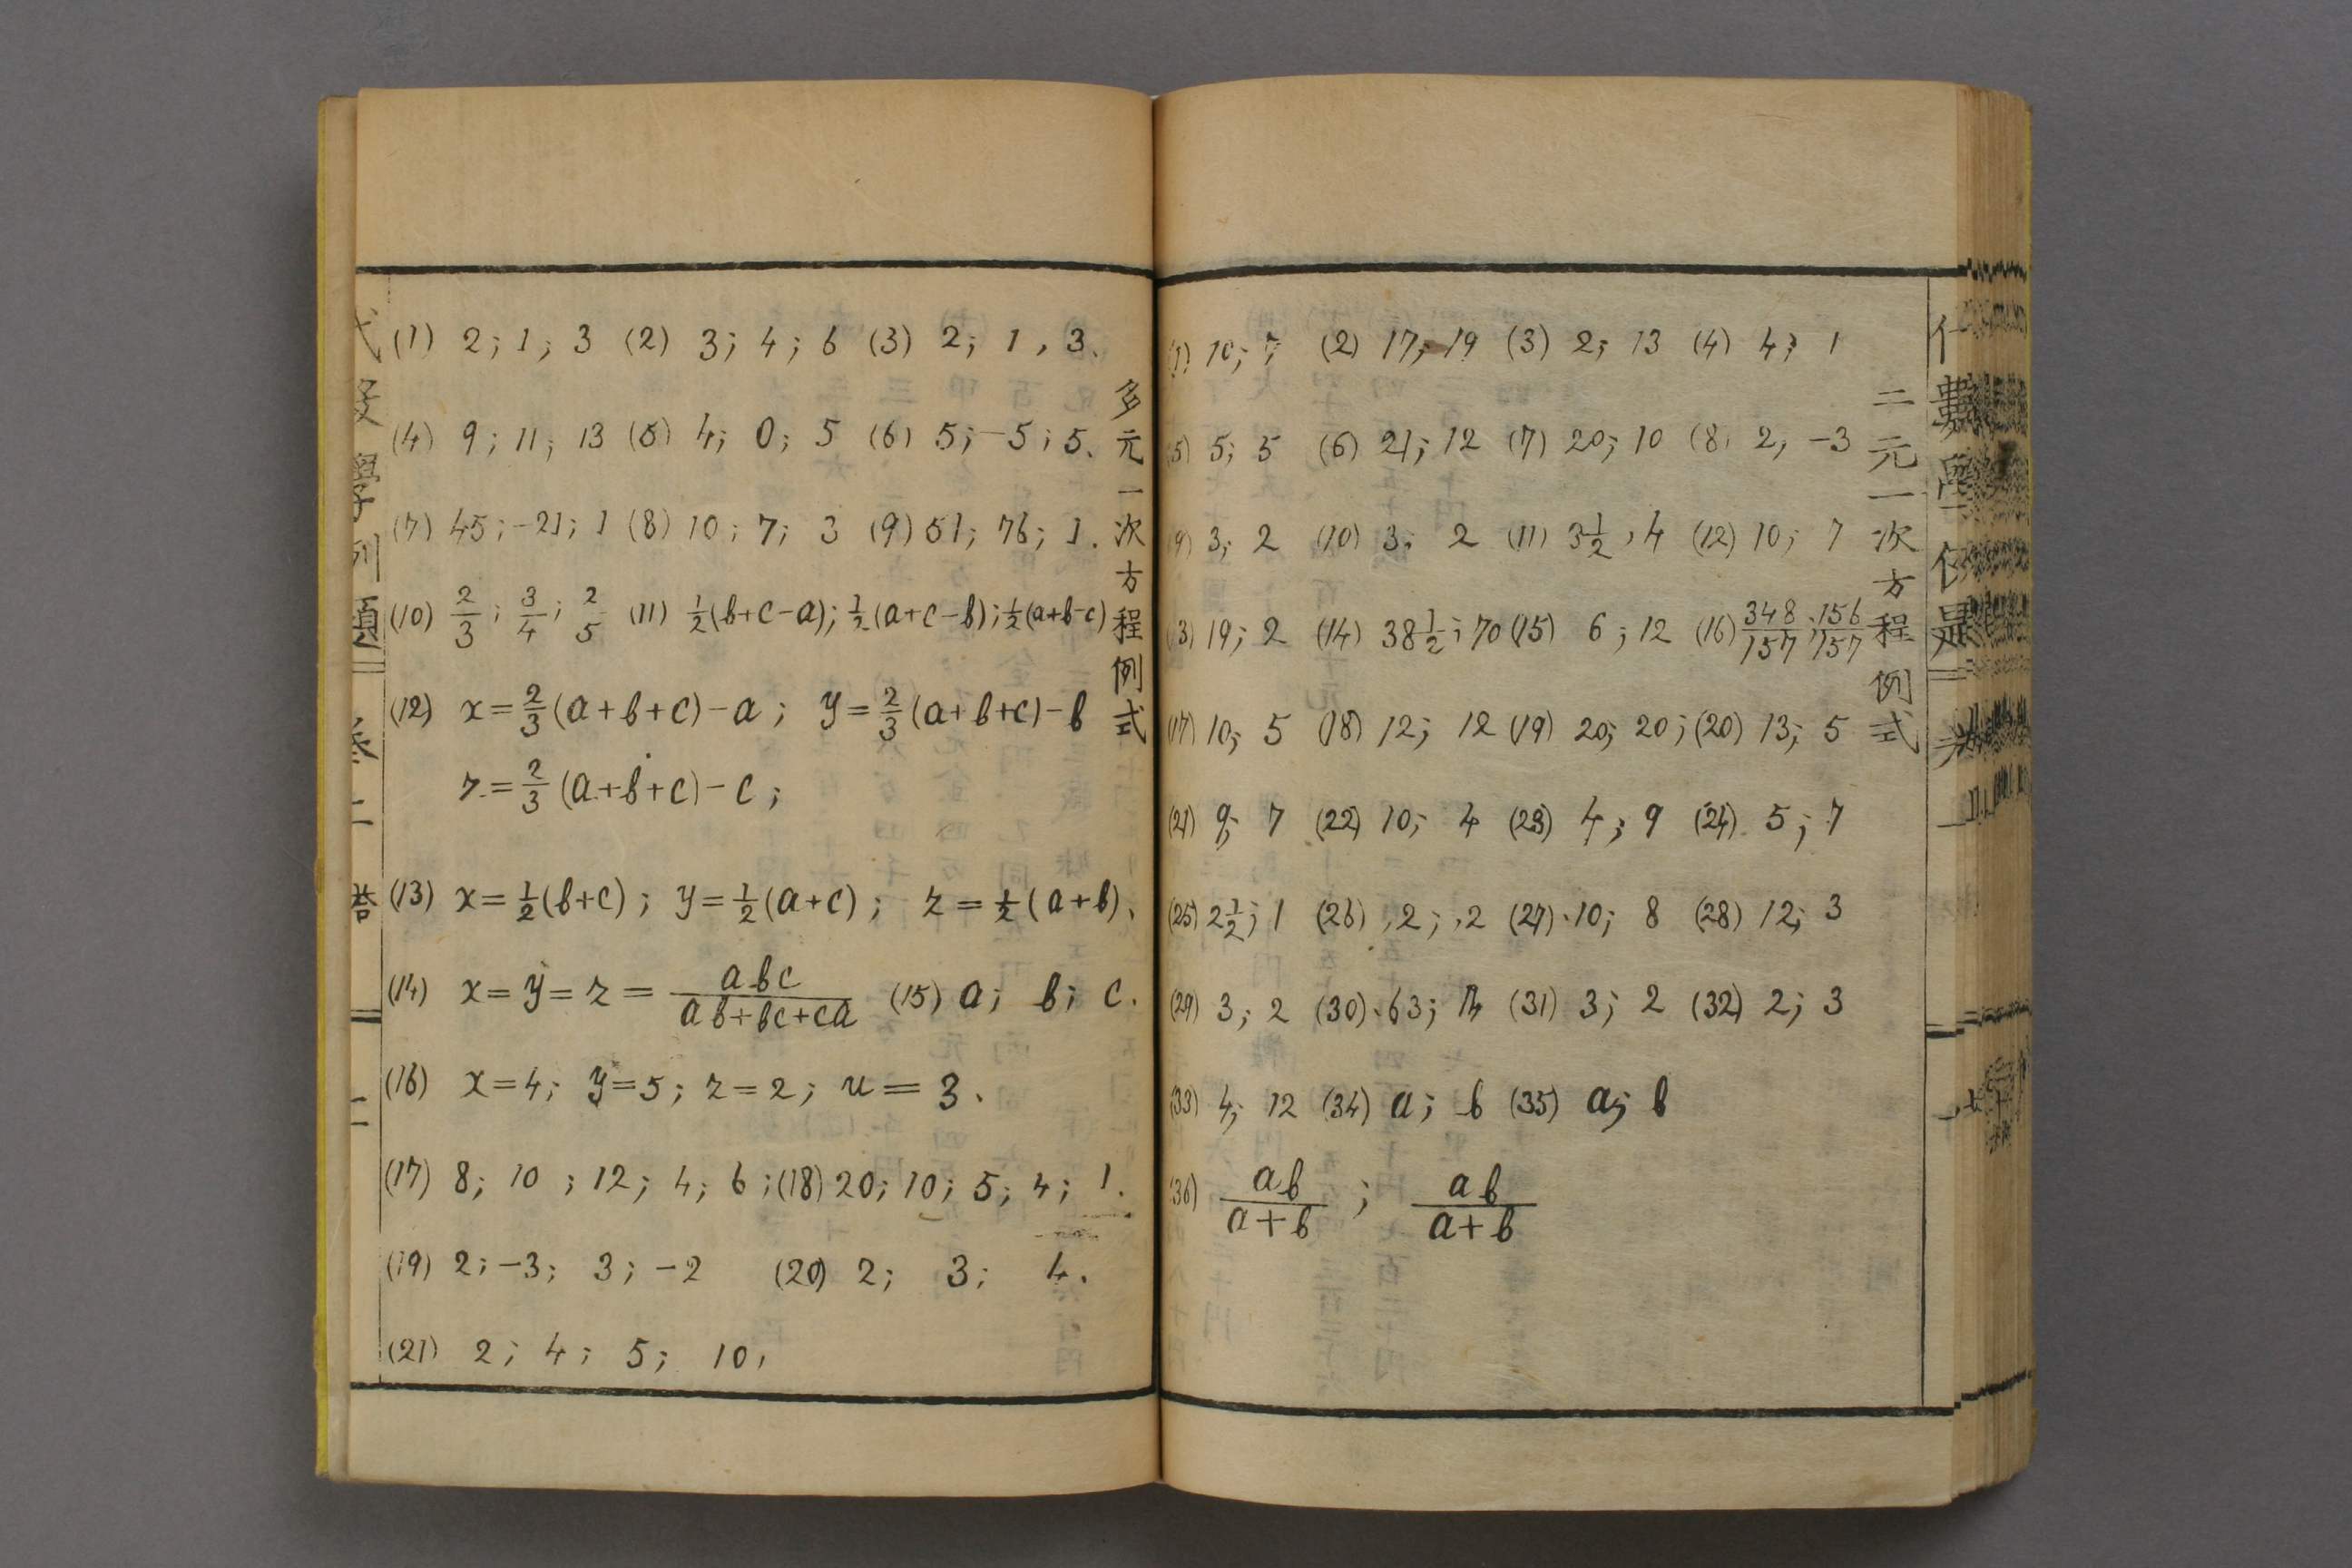 二元一次方程例式
(1) 10; 7 (2) 17; 19 (3) 2; 13 (4) 4; 1
(5) 5; 5 (6) 21; 12 (7) 20; 10 (8) 2, -3
(9) 3; 2 (10) 3; 2 (11) 3½, 4 (12) 10; 7
(13) 19; 2 (14) 38½; 70 (15) 6; 12 (16) 348/157; 156/157
(17) 10; 5 (18) 12; 12 (19) 20; 20; (20) 13; 5
(21) 9; 7 (22) 10; 4 (23) 4; 9 (24) 5; 7
(25) 2½; 1 (26) .2; .2 (27) 10; 8 (28) 12; 3
(29) 3; 2 (30) 63; (31) 3; 2 (32) 2; 3
(33) 4; 12 (34) a; b (35) a; b
(36) ab/(a+b); ab/(a+b)
多元一次方程例式
(1) 2; 1; 3 (2) 3; 4; 6 (3) 2; 1, 3.
(4) 9; 11; 13 (5) 4; 0; 5 (6) 5; -5; 5.
(7) 45; -21; 1 (8) 10; 7; 3 (9) 51; 76; 1.
(10) 2/3; 3/4; 2/5 (11) ½(b+c-a); ½(a+c-b); ½(a+b-c)
(12) x=2/3(a+b+c)-a; y=2/3(a+b+c)-b
z=2/3(a+b+c)-c;
(13) x=½(b+c); y=½(a+c); z=½(a+b).
(14) x=y=z=abc/(ab+bc+ca) (15) a; b; c.
(16) x=4; y=5; z=2; u=3.
(17) 8; 10; 12; 4; 6; (18) 20; 10; 5; 4; 1.
(19) 2; -3; 3; -2 (20) 2; 3; 4.
(21) 2; 4; 5; 10,
代數學例題 卷二 答 二